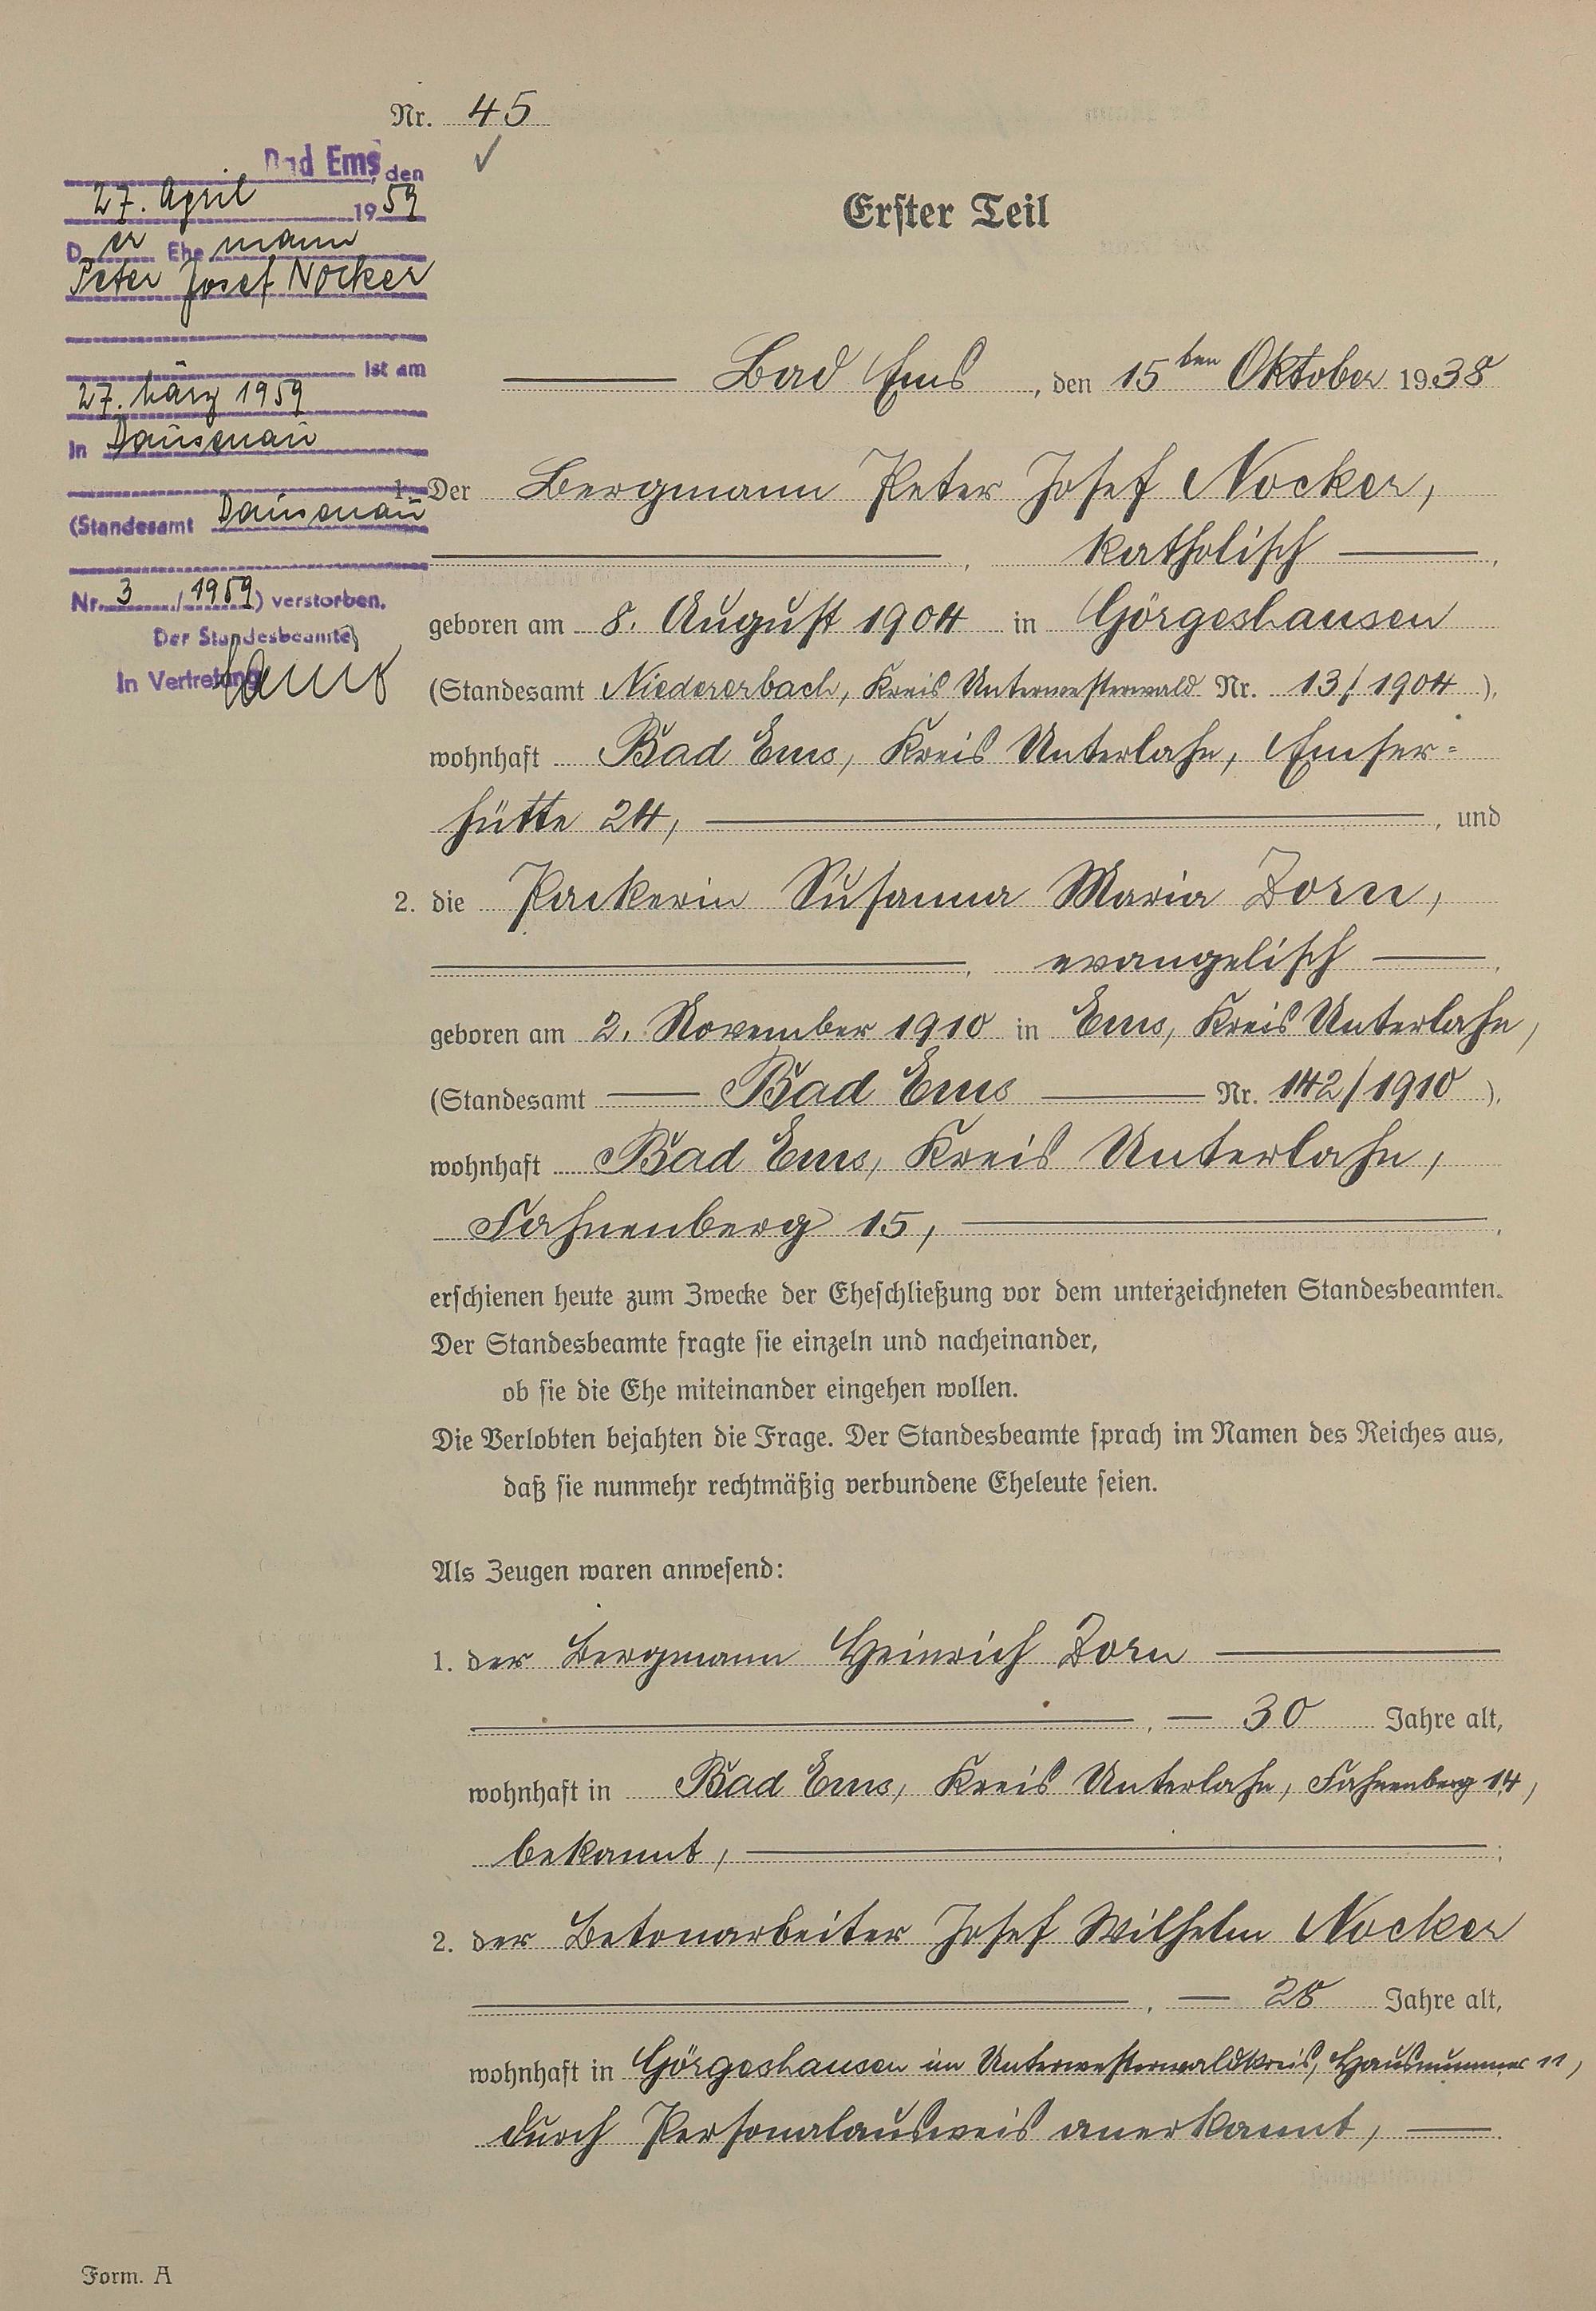 Nr. 45
✓
Bad Ems, den
27. April 1959
Der Ehemann
Peter Josef Nocker
ist am
27. März 1959
in Dausenau
(Standesamt Dausenau
Nr. 3 / 1959) verstorben.
Der Standesbeamte
In Vertretung
Erster Teil
Bad Ems, den 15ten Oktober 1938
1. Der Bergmann Peter Josef Nocker,
, katholisch ,
geboren am 8. August 1904 in Görgeshausen
(Standesamt Niedererbach, Kreis Unterwesterwald Nr. 13/1904 ),
wohnhaft Bad Ems, Kreis Unterlahn, Emser=
hütte 24, , und
2. die Packerin Susanna Maria Zorn,
, evangelisch ,
geboren am 2. November 1910 in Ems, Kreis Unterlahn,
(Standesamt Bad Ems Nr. 142/1910 ),
wohnhaft Bad Ems, Kreis Unterlahn,
Fahnenberg 15, ,
erschienen heute zum Zwecke der Eheschließung vor dem unterzeichneten Standesbeamten.
Der Standesbeamte fragte sie einzeln und nacheinander,
ob sie die Ehe miteinander eingehen wollen.
Die Verlobten bejahten die Frage. Der Standesbeamte sprach im Namen des Reiches aus,
daß sie nunmehr rechtmäßig verbundene Eheleute seien.
Als Zeugen waren anwesend:
1. der Bergmann Heinrich Zorn
, — 30 Jahre alt,
wohnhaft in Bad Ems, Kreis Unterlahn, Fahnenberg 14,
bekannt, ;
2. der Betonarbeiter Josef Wilhelm Nocker
, — 28 Jahre alt,
wohnhaft in Görgeshausen im Unterwesterwaldkreis, Hausnummer 11,
durch Personalausweis anerkannt, —.
Form. A